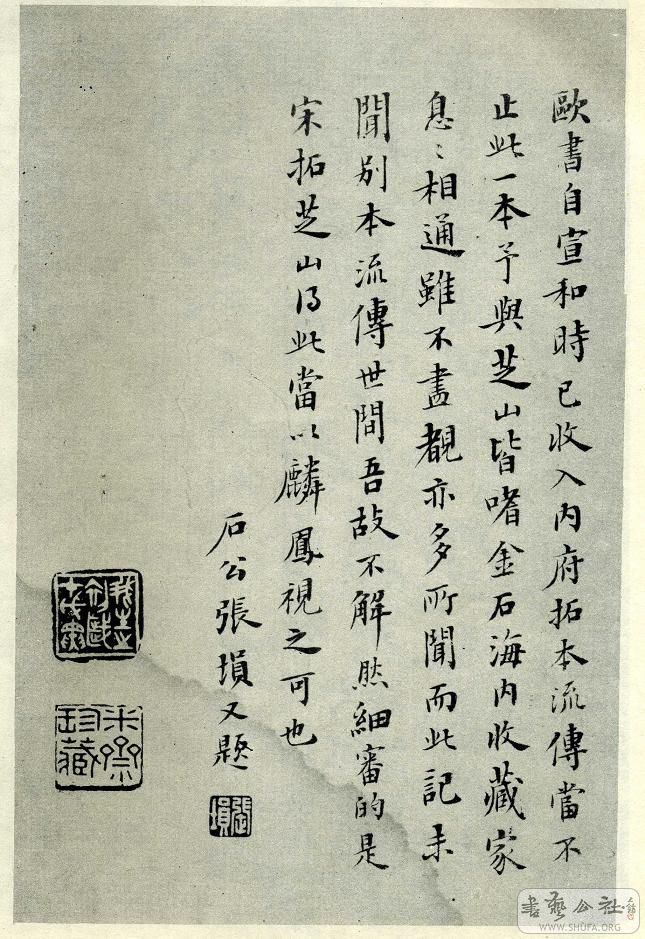 歐書自宣和時已收入內府拓本流傳當不
止此一本予與芝山皆嗜金石海內收藏家
息〻相通雖不盡覩亦多所聞而此記未
聞別本流傳世間吾故不解然細審的是
宋拓芝山得此當以麟鳳視之可也
石公張塤又題
張塤
珍藏
書藝公社
WWW.SHUFA.ORG